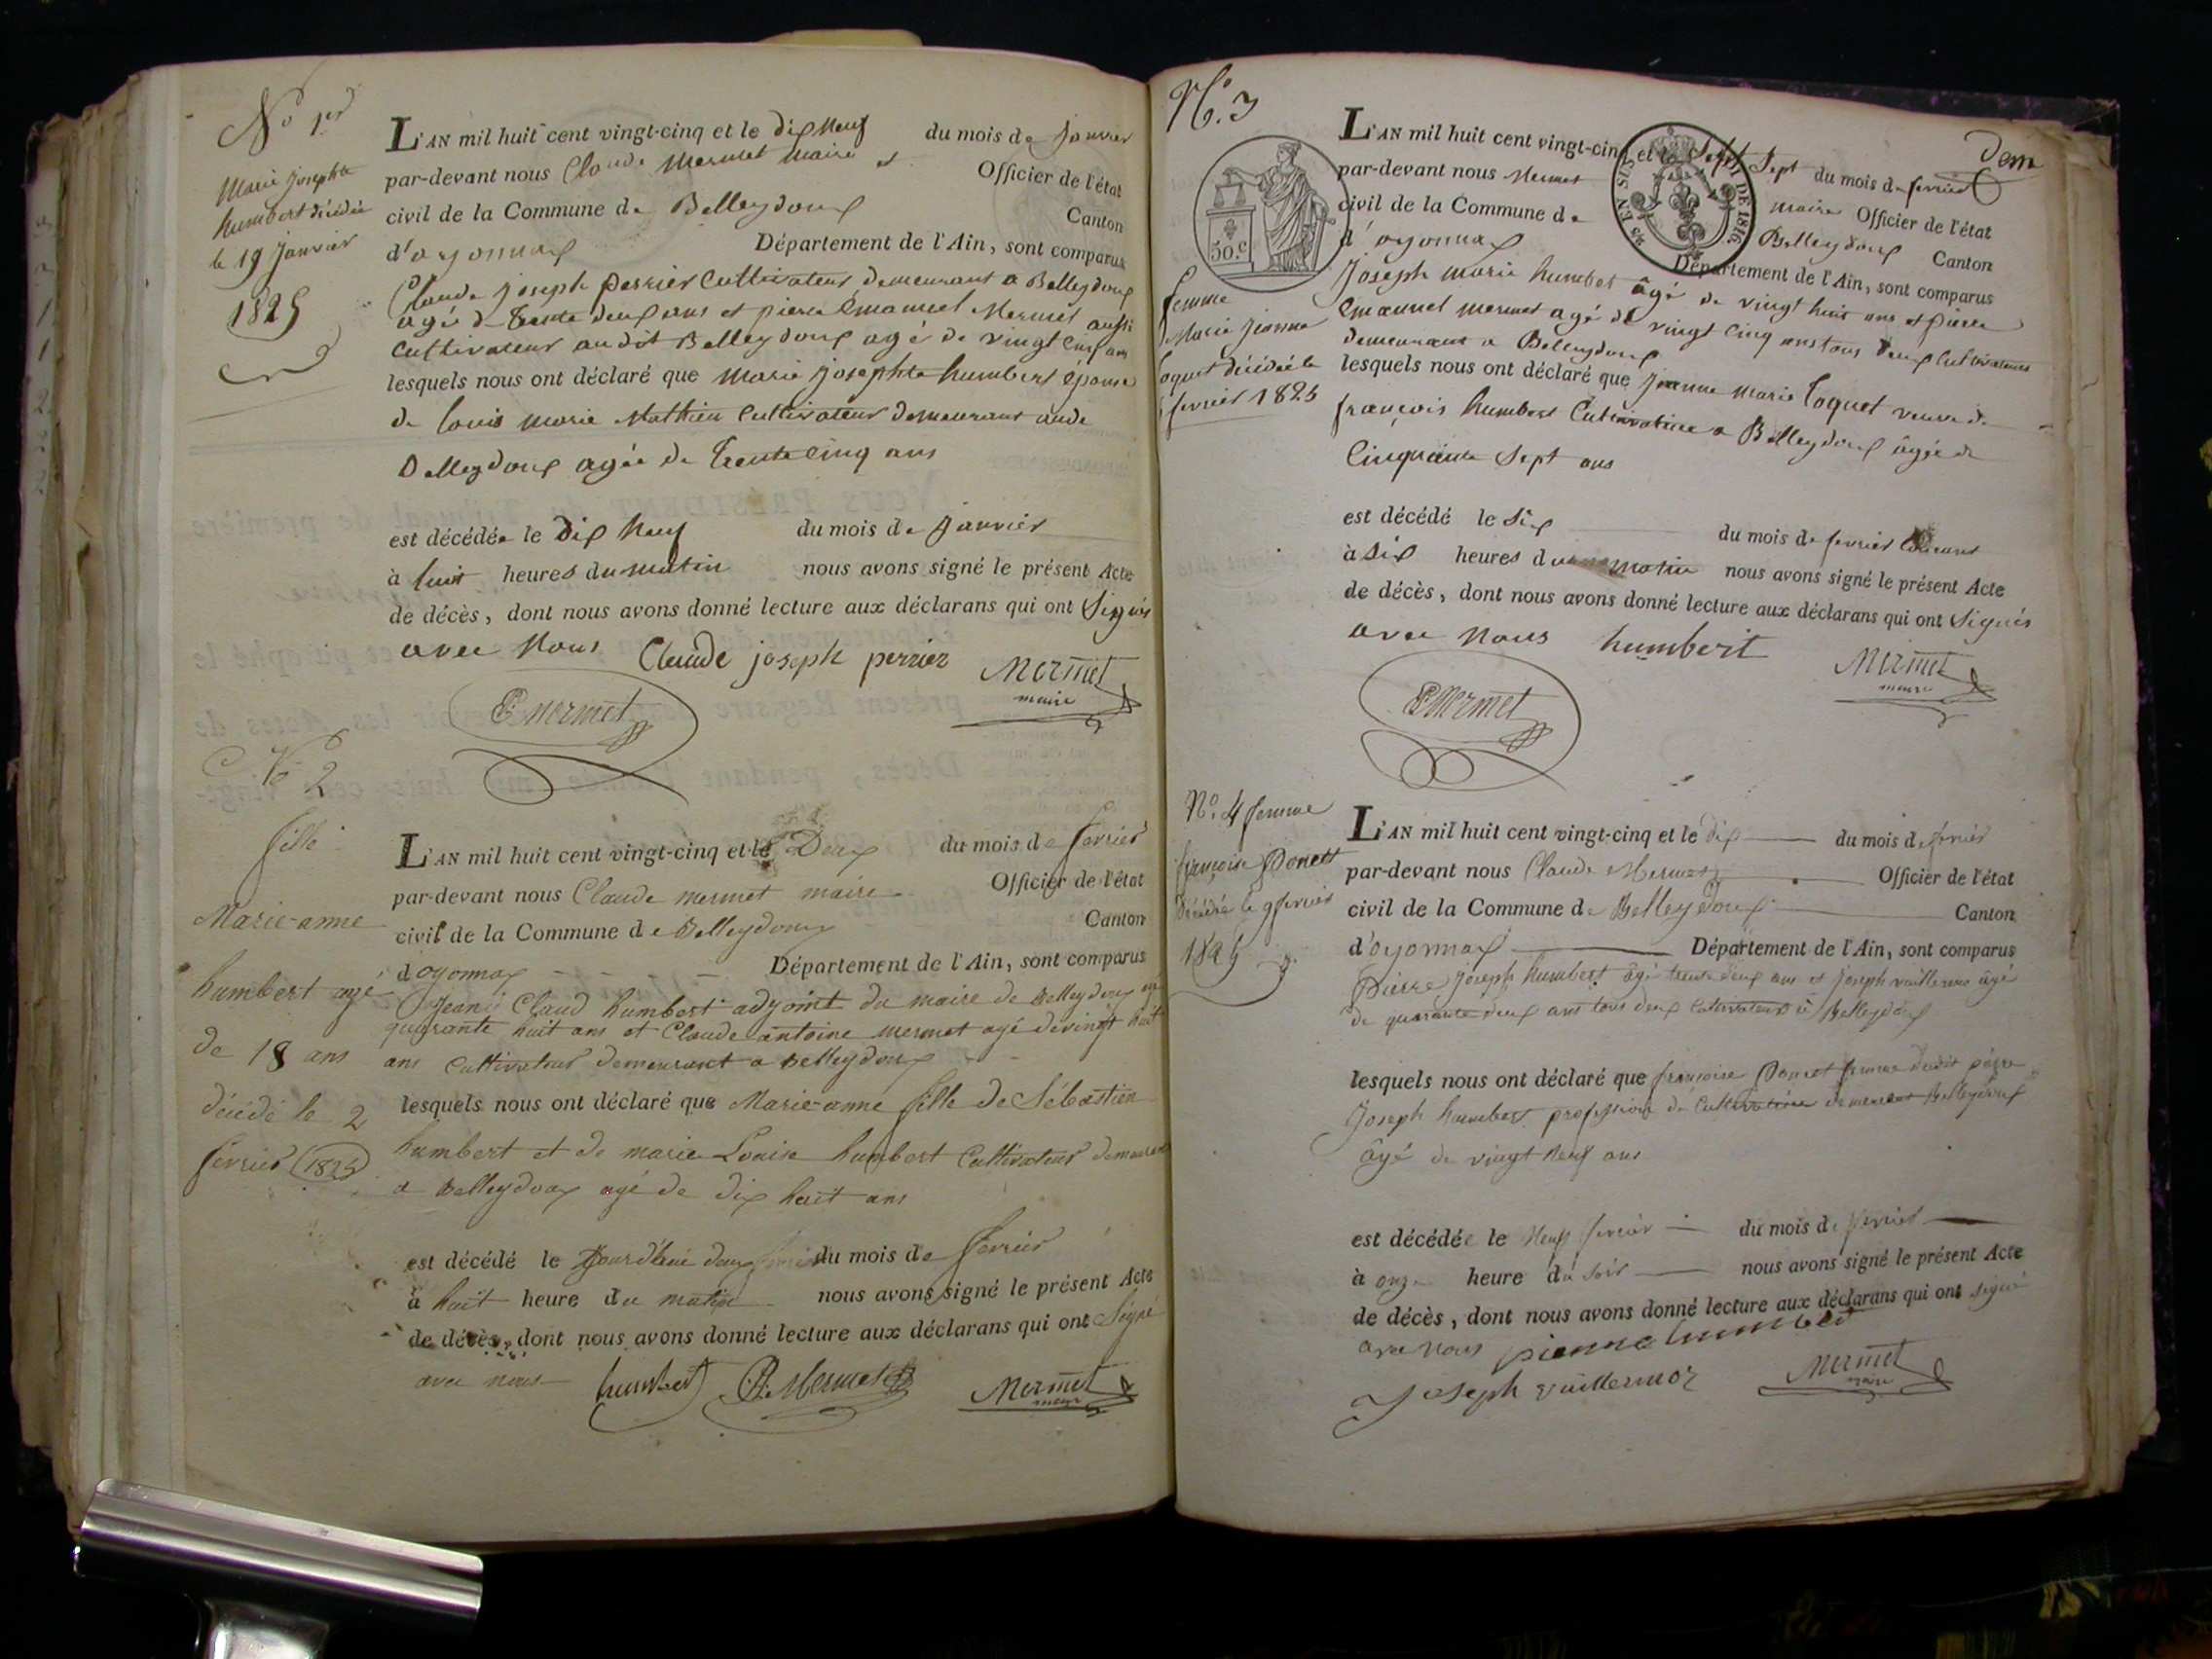 No 1er
Marie Josephte
humbert décédée
le 19 Janvier
1825
L'AN mil huit cent vingt-cinq et le dix neuf du mois de Janvier
par-devant nous Claude Mermet Maire et Officier de l'état
civil de la Commune de Belleydoux Canton
d'oyonnax Département de l'Ain, sont comparus
Claude joseph perrier Cultivateur demeurant a Belleydoux
agé de trente deux ans et pierre Emanuel Mermet aussi
Cultivateur audit Belleydoux agé de vingt cinq ans
lesquels nous ont déclaré que Marie Josephte humbert epouse
de louis marie Mathieu Cultivateur demeurant aude
Belleydoux agée de trente cinq ans
est décédée le dix neuf du mois de Janvier
à huit heures du matin nous avons signé le présent Acte
de décès, dont nous avons donné lecture aux déclarans qui ont Signés
avec Nous Claude joseph perrier Mermet
maire
E Mermet
No 2
fille
Marie-anne
humbert agé
de 18 ans
décédé le 2
fevrier 1825
L'AN mil huit cent vingt-cinq et le Deux du mois de fevrier
par-devant nous Claude mermet maire Officier de l'état
civil de la Commune de Belleydoux Canton
d'oyonnax Département de l'Ain, sont comparus
Jean Claud humbert adjoint du maire de Belleydoux agé
quarante huit ans et Claude antoine mermet agé de vingt huit
ans Cultivateur demeurant a Belleydoux
lesquels nous ont déclaré que Marie-anne fille de Sébastien
humbert et de marie Louise humbert Cultivateur demeurant
a Belleydoux agé de dix huit ans
est décédé le jourd'hui deux du mois de fevrier
à huit heure du matin nous avons signé le présent Acte
de décès, dont nous avons donné lecture aux déclarans qui ont Signé
avec nous humbert Mermet Mermet
maire
No. 3
dem
50.c
EN SUS
LOI DE 1816
femme
Marie jeanne
oquet décédée le
fevrier 1825
L'AN mil huit cent vingt-cinq et le Sept du mois de fevrier
par-devant nous Mermet maire Officier de l'état
civil de la Commune de Belleydoux Canton
d'oyonnax Département de l'Ain, sont comparus
Joseph marie humbert âgé de vingt huit ans et pierre
Emanuel mermet agé de vingt cinq ans tous deux Cultivateurs
demeurant a Belleydoux
lesquels nous ont déclaré que jeanne marie Coquet veuve de
françois humbert Cultivatrice a Belleydoux âgée de
Cinquante Sept ans
est décédé le Six du mois de fevrier Courant
à six heures du matin nous avons signé le présent Acte
de décès, dont nous avons donné lecture aux déclarans qui ont Signés
avec Nous humbert Mermet
maire
E Mermet
No. 4 femme
françoise Poncet
Décédée le 9 fevrier
1825
L'AN mil huit cent vingt-cinq et le dix du mois de fevrier
par-devant nous Claude Mermet Officier de l'état
civil de la Commune de Belleydoux Canton
d'oyonnax Département de l'Ain, sont comparus
Pierre Joseph humbert âgé trente deux ans et Joseph vuillermoz âgé
de quarante deux ans tous deux Cultivateurs à Belleydoux
lesquels nous ont déclaré que françoise Poncet femme dudit pierre
Joseph humbert profession de Cultivatrice demeurant Belleydoux
âgé de vingt neuf ans
est décédée le Neuf fevrier du mois de fevrier
à onze heure du soir nous avons signé le présent Acte
de décès, dont nous avons donné lecture aux déclarans qui ont signé
avec Nous pierre humbert
Joseph vuillermoz Mermet
maire